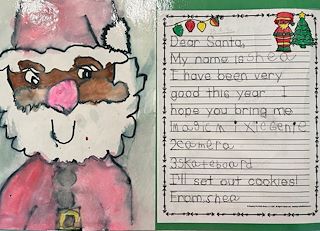 Dear Santa,
My name is shea
I have been very
good this year I
hope you bring me
2camera
3skateboard
I'll set out cookies!
From,shea